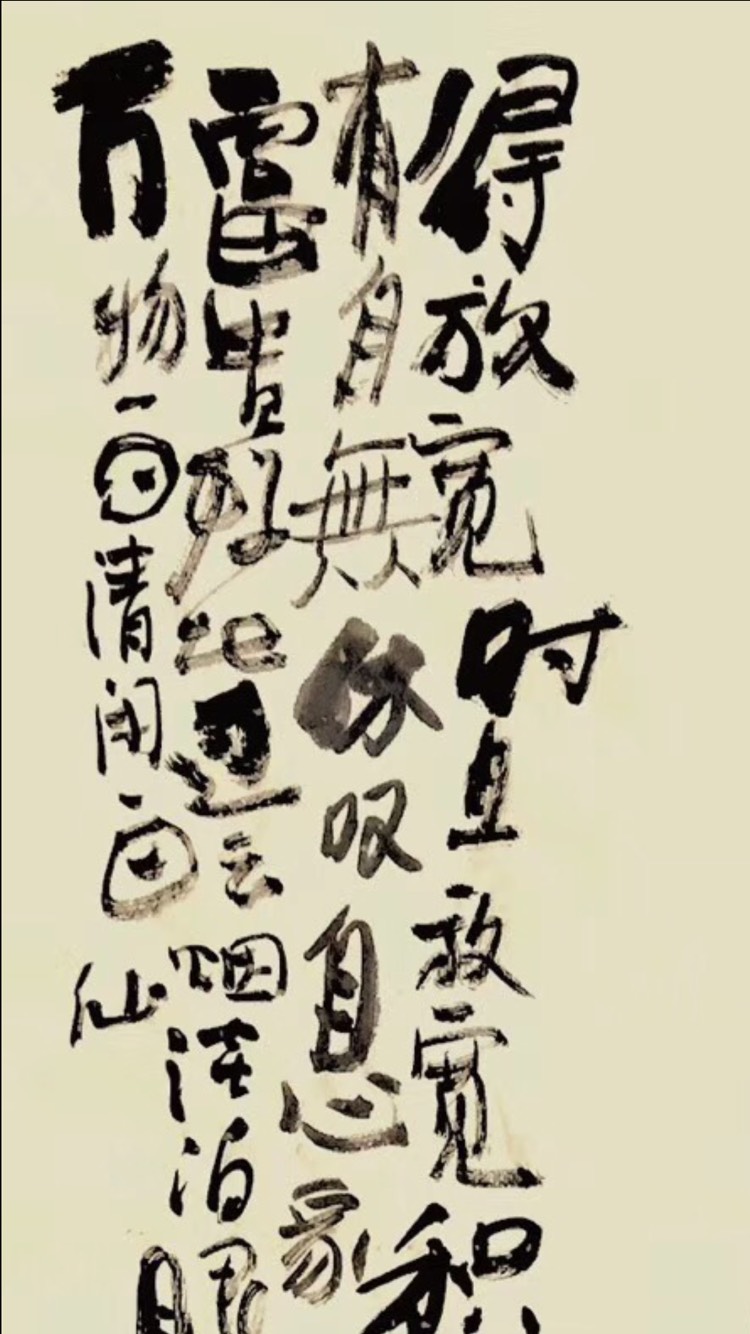 得放宽时且放宽积
有自無休叹息家
富贵好比过云烟淡泊眼
万物一日清闲一日仙